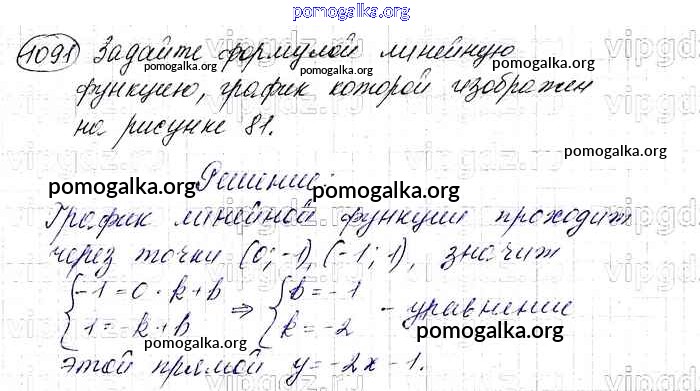 pomogalka.org
1091 Задайте формулой линейную
pomogalka.org pomogalka.org
функцию, график которой изображен
pomogalka.org
на рисунке 81.
pomogalka.org
Решение:
pomogalka.org pomogalka.org
График линейной функции проходит
через точки (0; -1), (-1; 1), значит
{-1 = 0 · k + b ⇒ {b = -1 - уравнение
1 = -k + b k = -2
pomogalka.org pomogalka.org
этой прямой y = -2x - 1.